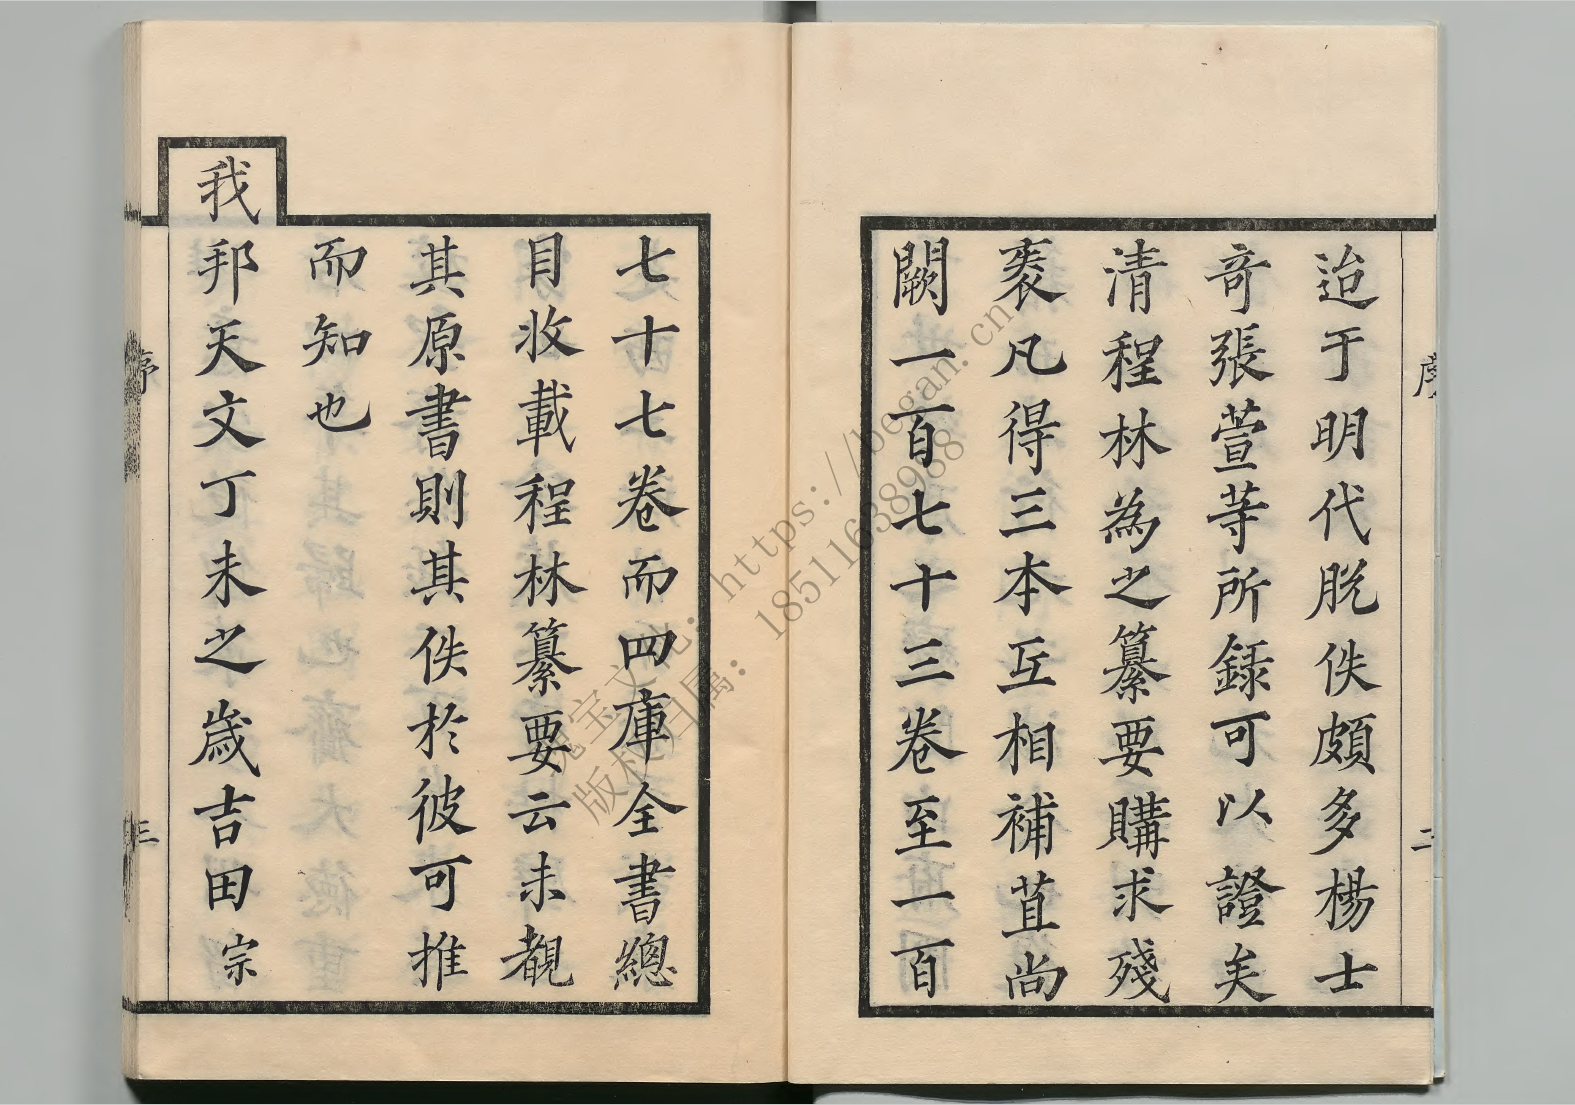 迨于明代脫佚頗多楊士
奇張萱等所録可以證矣
清程林為之纂要購求殘
袠凡得三本互相補苴尚
闕一百七十三卷至一百
序
二
七十七卷而四庫全書總
目收載程林纂要云未覩
其原書則其佚於彼可推
而知也
我邦天文丁未之歲吉田宗
序
三
https://began.cn
版权归属：18511638988